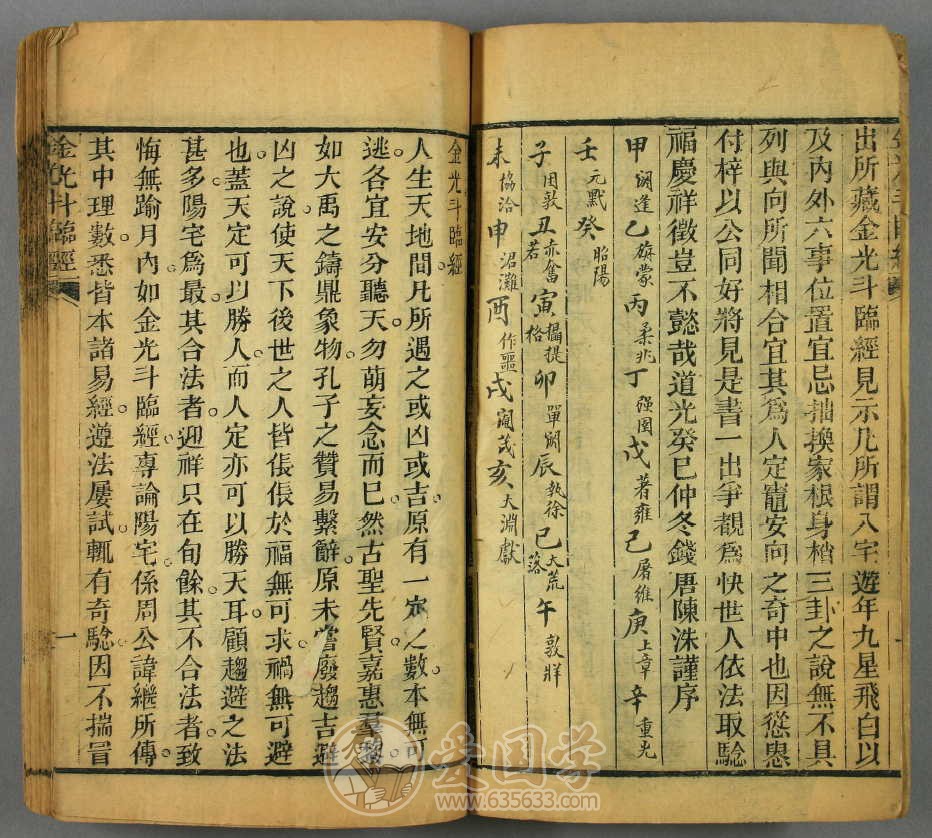 出所藏金光斗臨經見示凡所謂八宅遊年九星飛白以
及內外六事位置宜忌抽換家根身樁三卦之說無不具
列與向所聞相合宜其爲人定竈安向之奇中也因慫恿
付梓以公同好將見是書一出爭覩爲快世人依法取騐
福慶祥徵豈不懿哉道光癸巳仲冬錢唐陳洙謹序
甲 閼逢 乙 旃蒙 丙 柔兆 丁 强圉 戊 著雍 己 屠維 庚 上章 辛 重光
壬 元黓 癸 昭陽
子 困敦 丑 赤奮若 寅 攝提格 卯 單閼 辰 執徐 巳 大荒落 午 敦牂
未 協洽 申 涒灘 酉 作噩 戌 閹茂 亥 大淵獻
金光斗臨經
人生天地間凡所遇之或凶或吉原有一定之數本無可
逃各宜安分聽天勿萌妄念而已然古聖先賢嘉惠羣黎
如大禹之鑄鼎象物孔子之贊易繫辭原未嘗廢趨吉避
凶之說使天下後世之人皆倀倀於福無可求禍無可避
也蓋天定可以勝人而人定亦可以勝天耳顧趨避之法
甚多陽宅爲最其合法者迎祥只在旬餘其不合法者致
悔無踰月內如金光斗臨經專論陽宅係周公諱繼所傳
其中理數悉皆本諸易經遵法屢試輒有奇騐因不揣冒
金光斗臨經
一
爱国学
www.635633.com